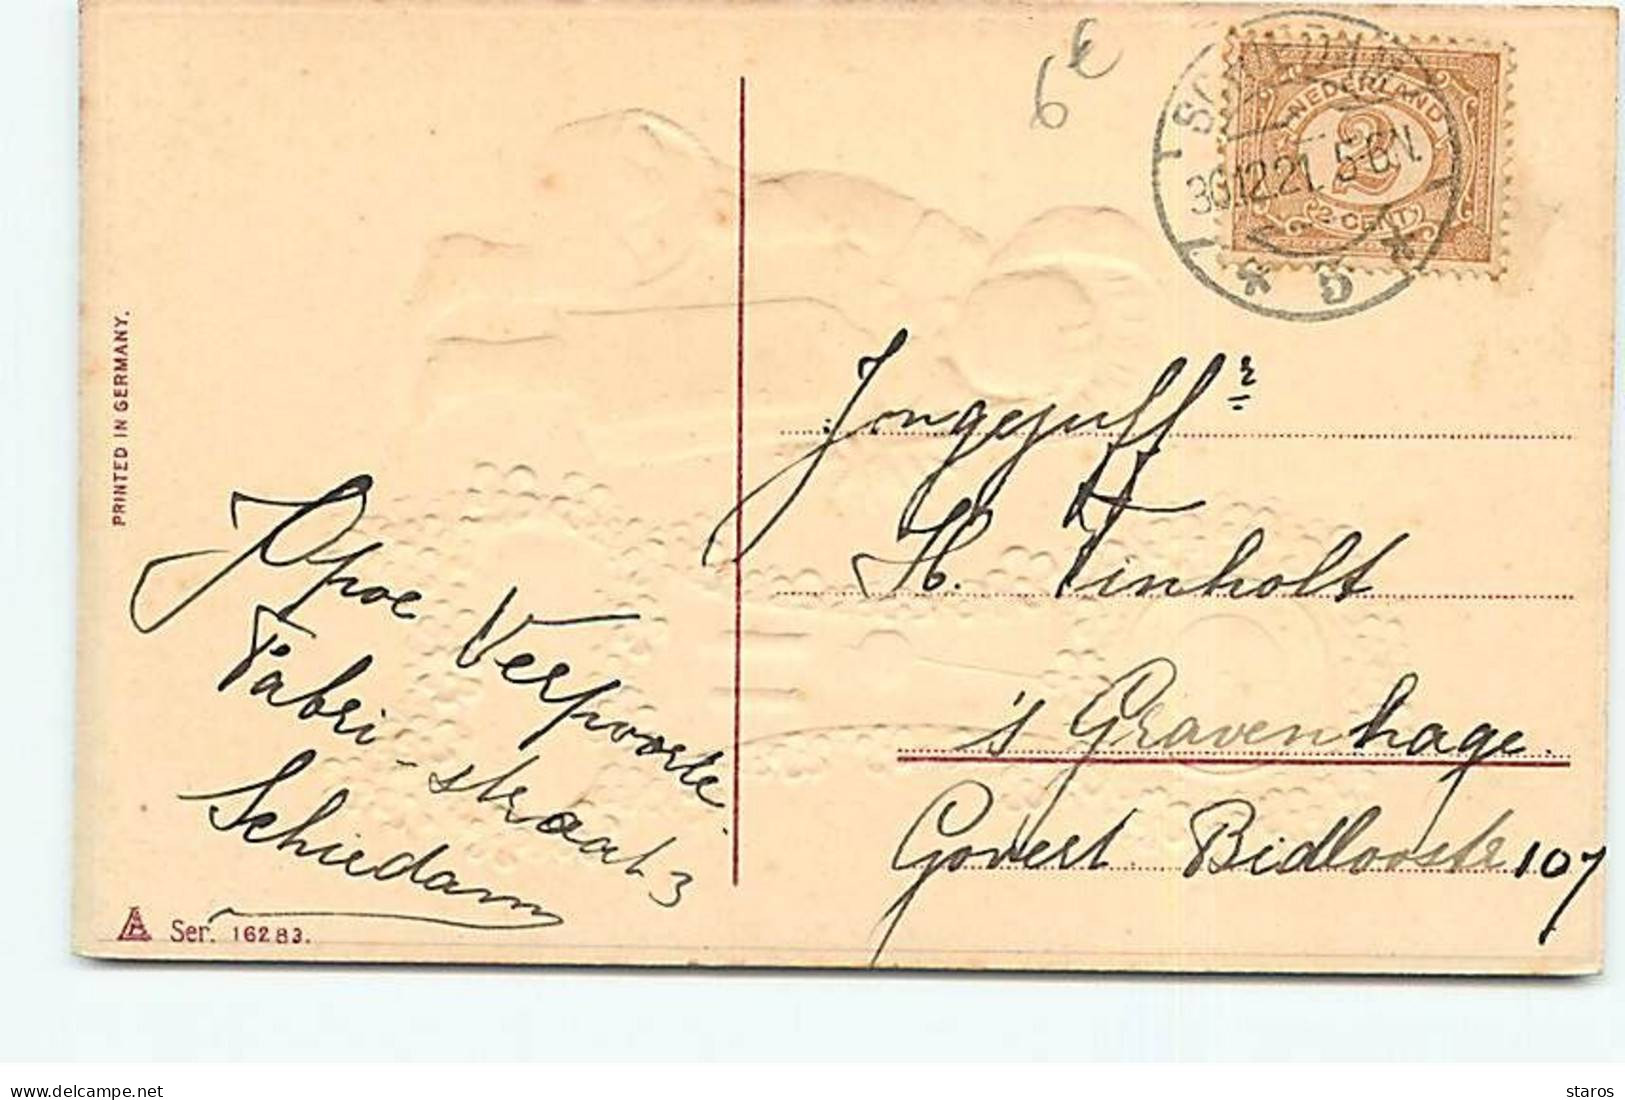 6 €
SCHIEDAM
30.12.21. 5-6N.
3
NEDERLAND
2
2 CENT
PRINTED IN GERMANY.
Jongejuffr
H. Finholt
's Gravenhage.
Govert Bidloostr 107
Verpoorte
Fabri-straat 3
Schiedam
Ser. 16283.
www.delcampe.net
staros